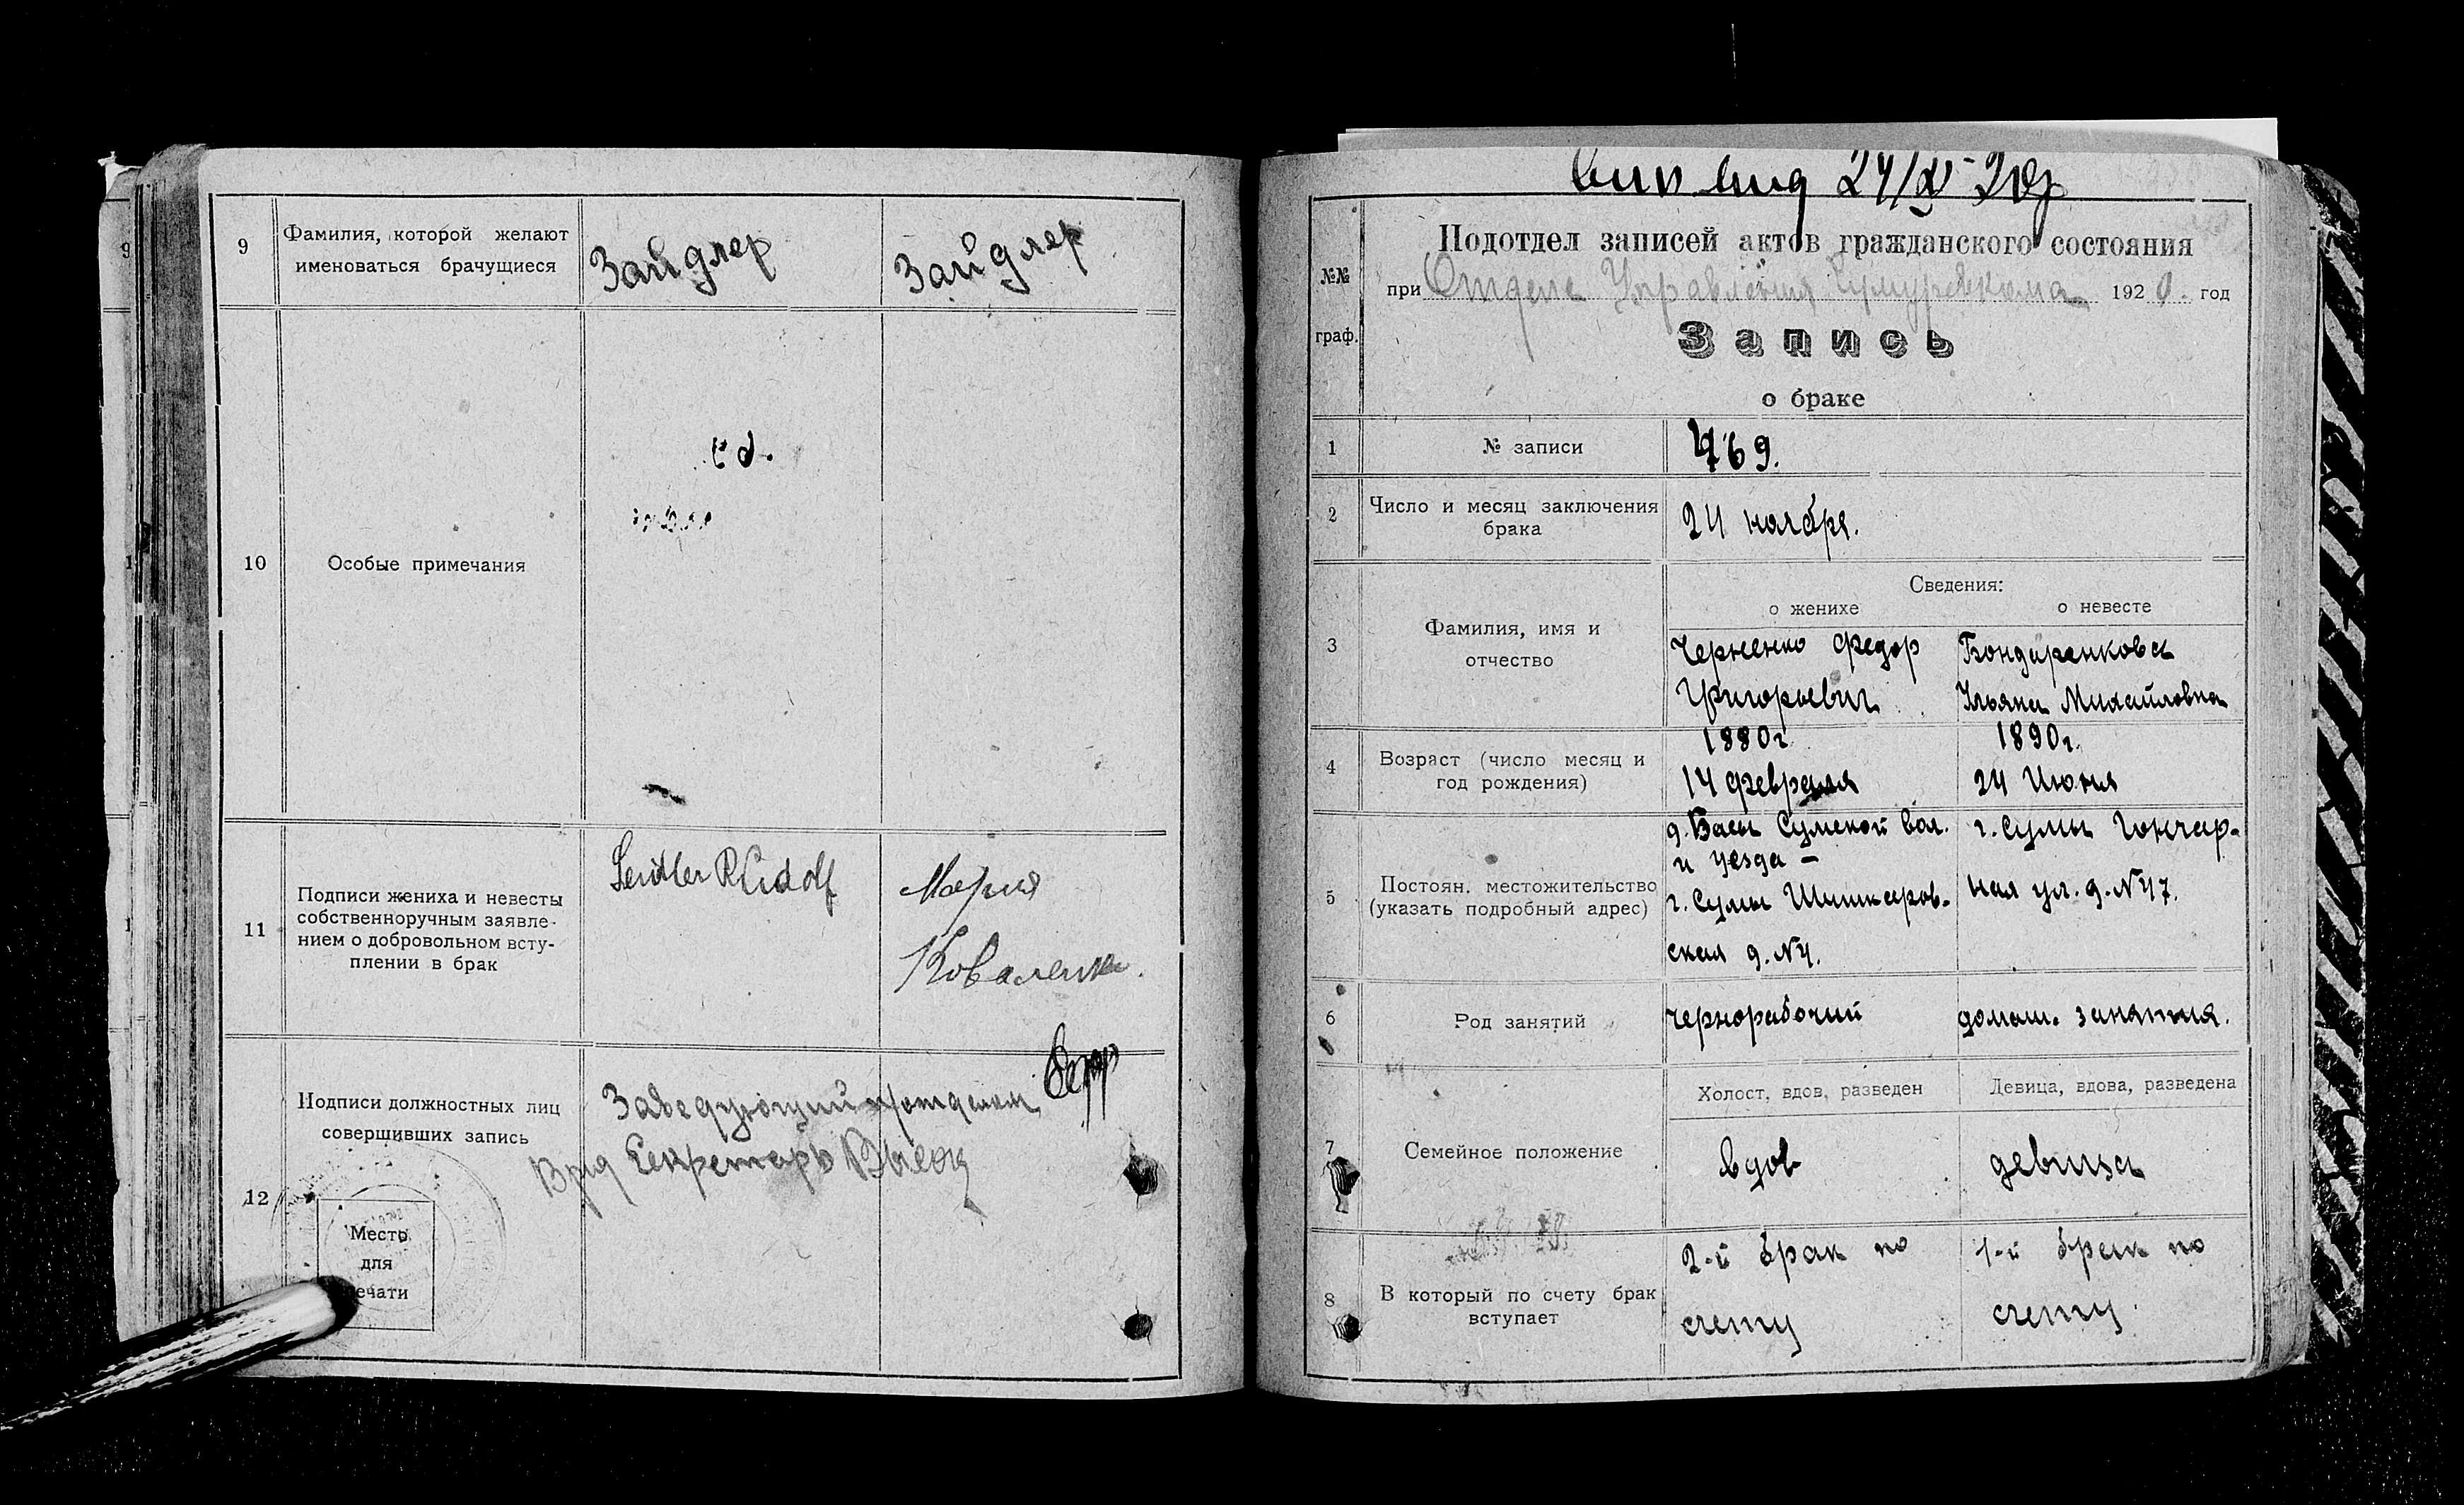 9
Фамилия, которой желают
именоваться брачущиеся
Зайдлер
Зайдлер
10
Особые примечания
11
Подписи жениха и невесты
собственноручным заявле-
нием о добровольном всту-
плении в брак
Seidler Rudolf
Мария
Коваленко.
12
Подписи должностных лиц
совершивших запись
Заведующий п/отделом
Врид Секретарь
Место
для
печати
24/XI 20г
Подотдел записей актов гражданского состояния
№№
граф.
при Отделе Управления 1920. год
Запись
о браке
1
№ записи
769.
2
Число и месяц заключения
брака
24 ноября.
3
Фамилия, имя и
отчество
Сведения:
о женихе
о невесте
Черненко Федор
Григорьевич
Бондаренкова
Ульяна Михайловна
4
Возраст (число месяц и
год рождения)
1880г.
14 февраля
1890г.
24 Июня
5
Постоян. местожительство
(указать подробный адрес)
д. Басы Сумской вол.
и уезда –
г. Сумы Шишкаров-
ская д. №4.
г. Сумы Гончар-
ная ул. д. №47.
6
Род занятий
чернорабочий
домаш. занятия.
7
Семейное положение
Холост, вдов, разведен
Девица, вдова, разведена
вдов
девица
8
В который по счету брак
вступает
2-й брак по
счету
1-й брак по
счету